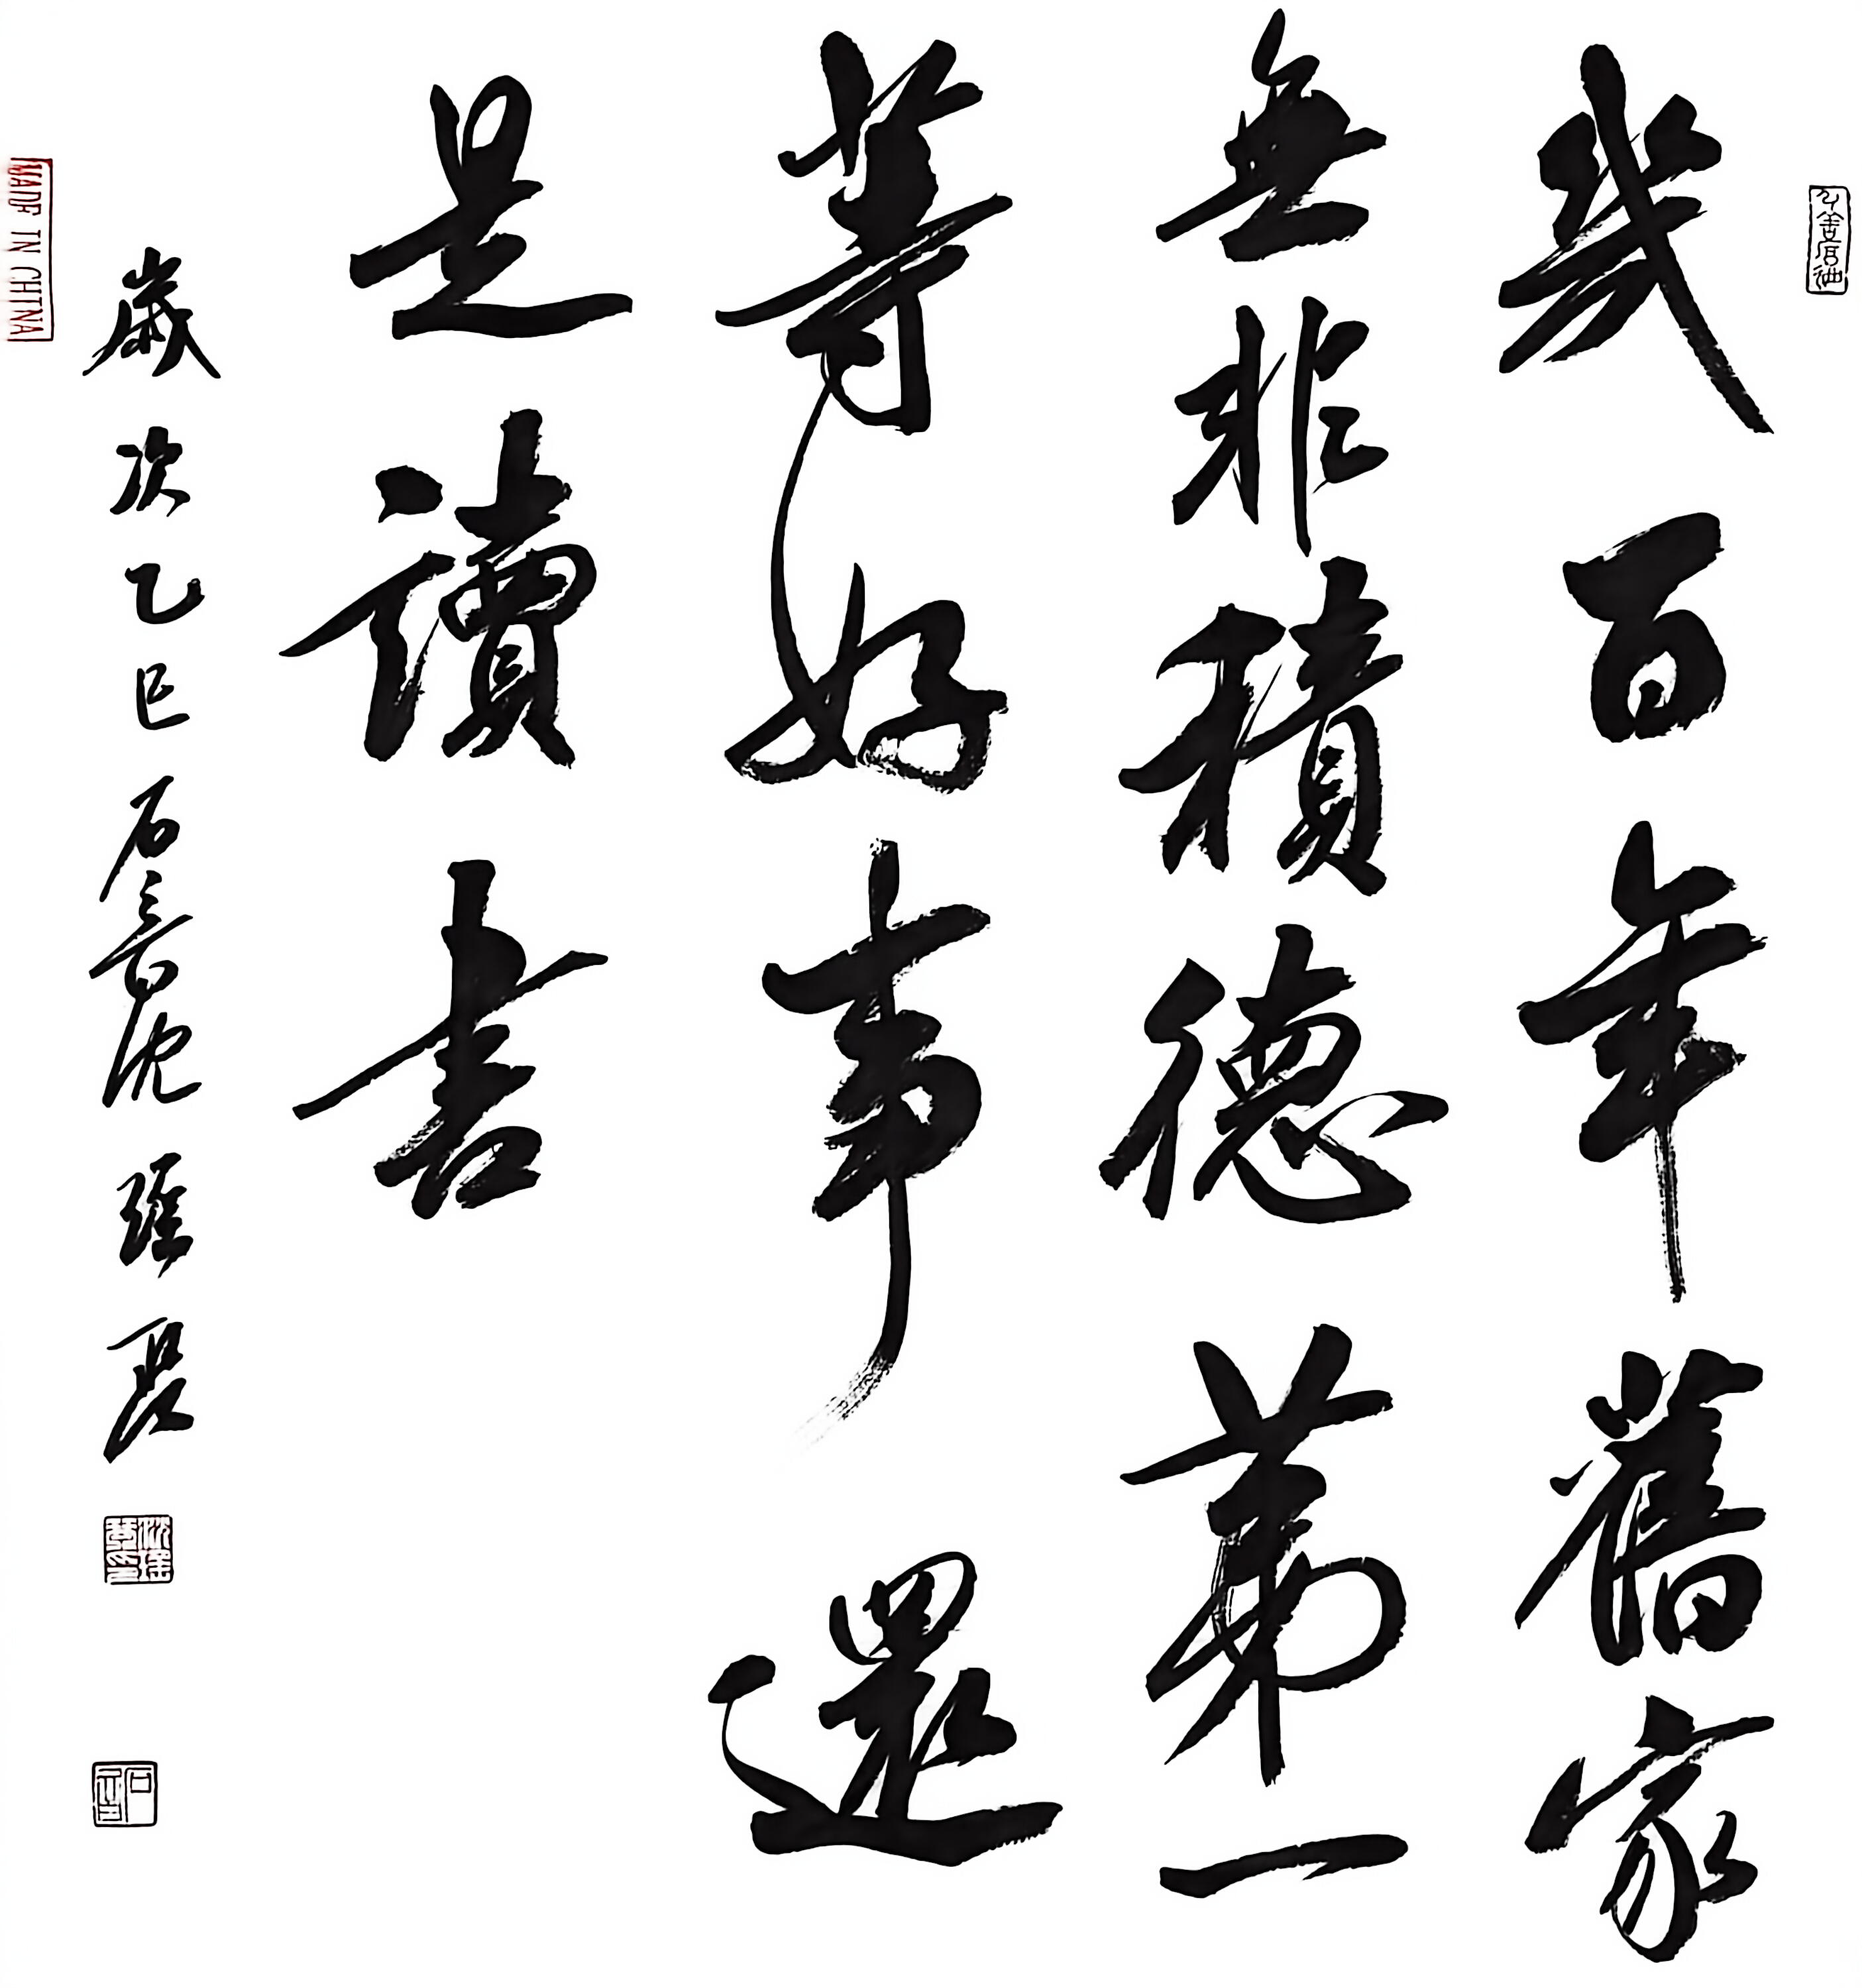 幾百年舊家
無非積德第一
等好事還
是讀書
歲次乙巳石沈瑶
MADE IN CHINA